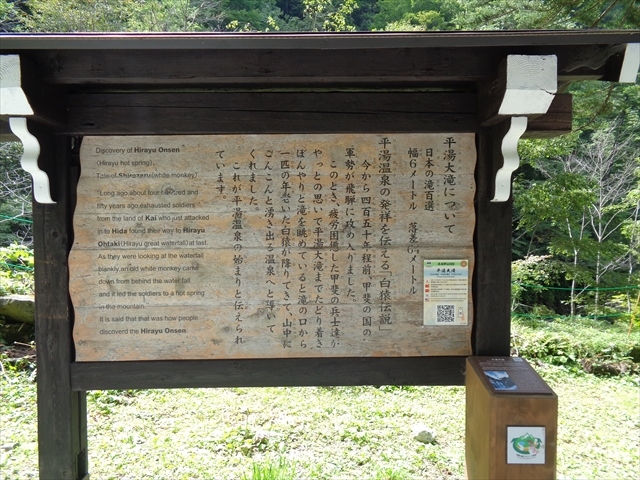 平湯大滝について
日本の滝百選
幅6メートル 落差6メートル
平湯温泉の発祥を伝える「白猿伝説」
今から四百五十年程前、甲斐の国の
軍勢が飛騨に攻め入りました。
このとき、疲労困憊した甲斐の兵士達が
やっとの思いで平湯大滝までたどり着き
ぼんやりと滝を眺めていると滝の口から
一匹の年老いた白猿が降りてきて、山中に
こんこんと湧き出る温泉へと導いて
くれました。
これが平湯温泉の始まりと伝えられ
ています。
Discovery of Hirayu Onsen
(Hirayu hot spring),
Tale of Shirozaru(white monkey)
Long ago about four hundred and
fifty years ago exhausted soldiers
from the land of Kai who just attacked
in to Hida found their way to Hirayu
Ohtaki(Hirayu great waterfall) at last.
As they were looking at the waterfall
blankly an old white monkey came
down from behind the water fall
and it led the soldiers to a hot spring
in the mountain.
It is said that that was how people
discoverd the Hirayu Onsen
平湯大滝